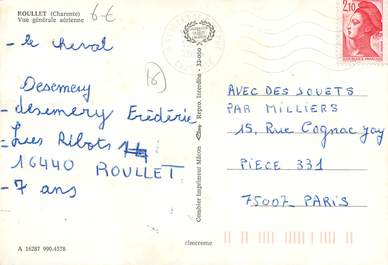 ROULLET (Charente)
Vue générale aérienne
6 €
- le cheval
16
Desemery
- desemery Frédéric
- Lues Ribots 14
16440 ROULLET
- 7 ans
A 16287 990.4578
Combier Imprimeur Mâcon
Repro. Interdite - 32-000
2,10
AVEC DES JOUETS
PAR MILLIERS
15, Rue Cognac Jay
PIECE 331
75007 PARIS
cimcrome